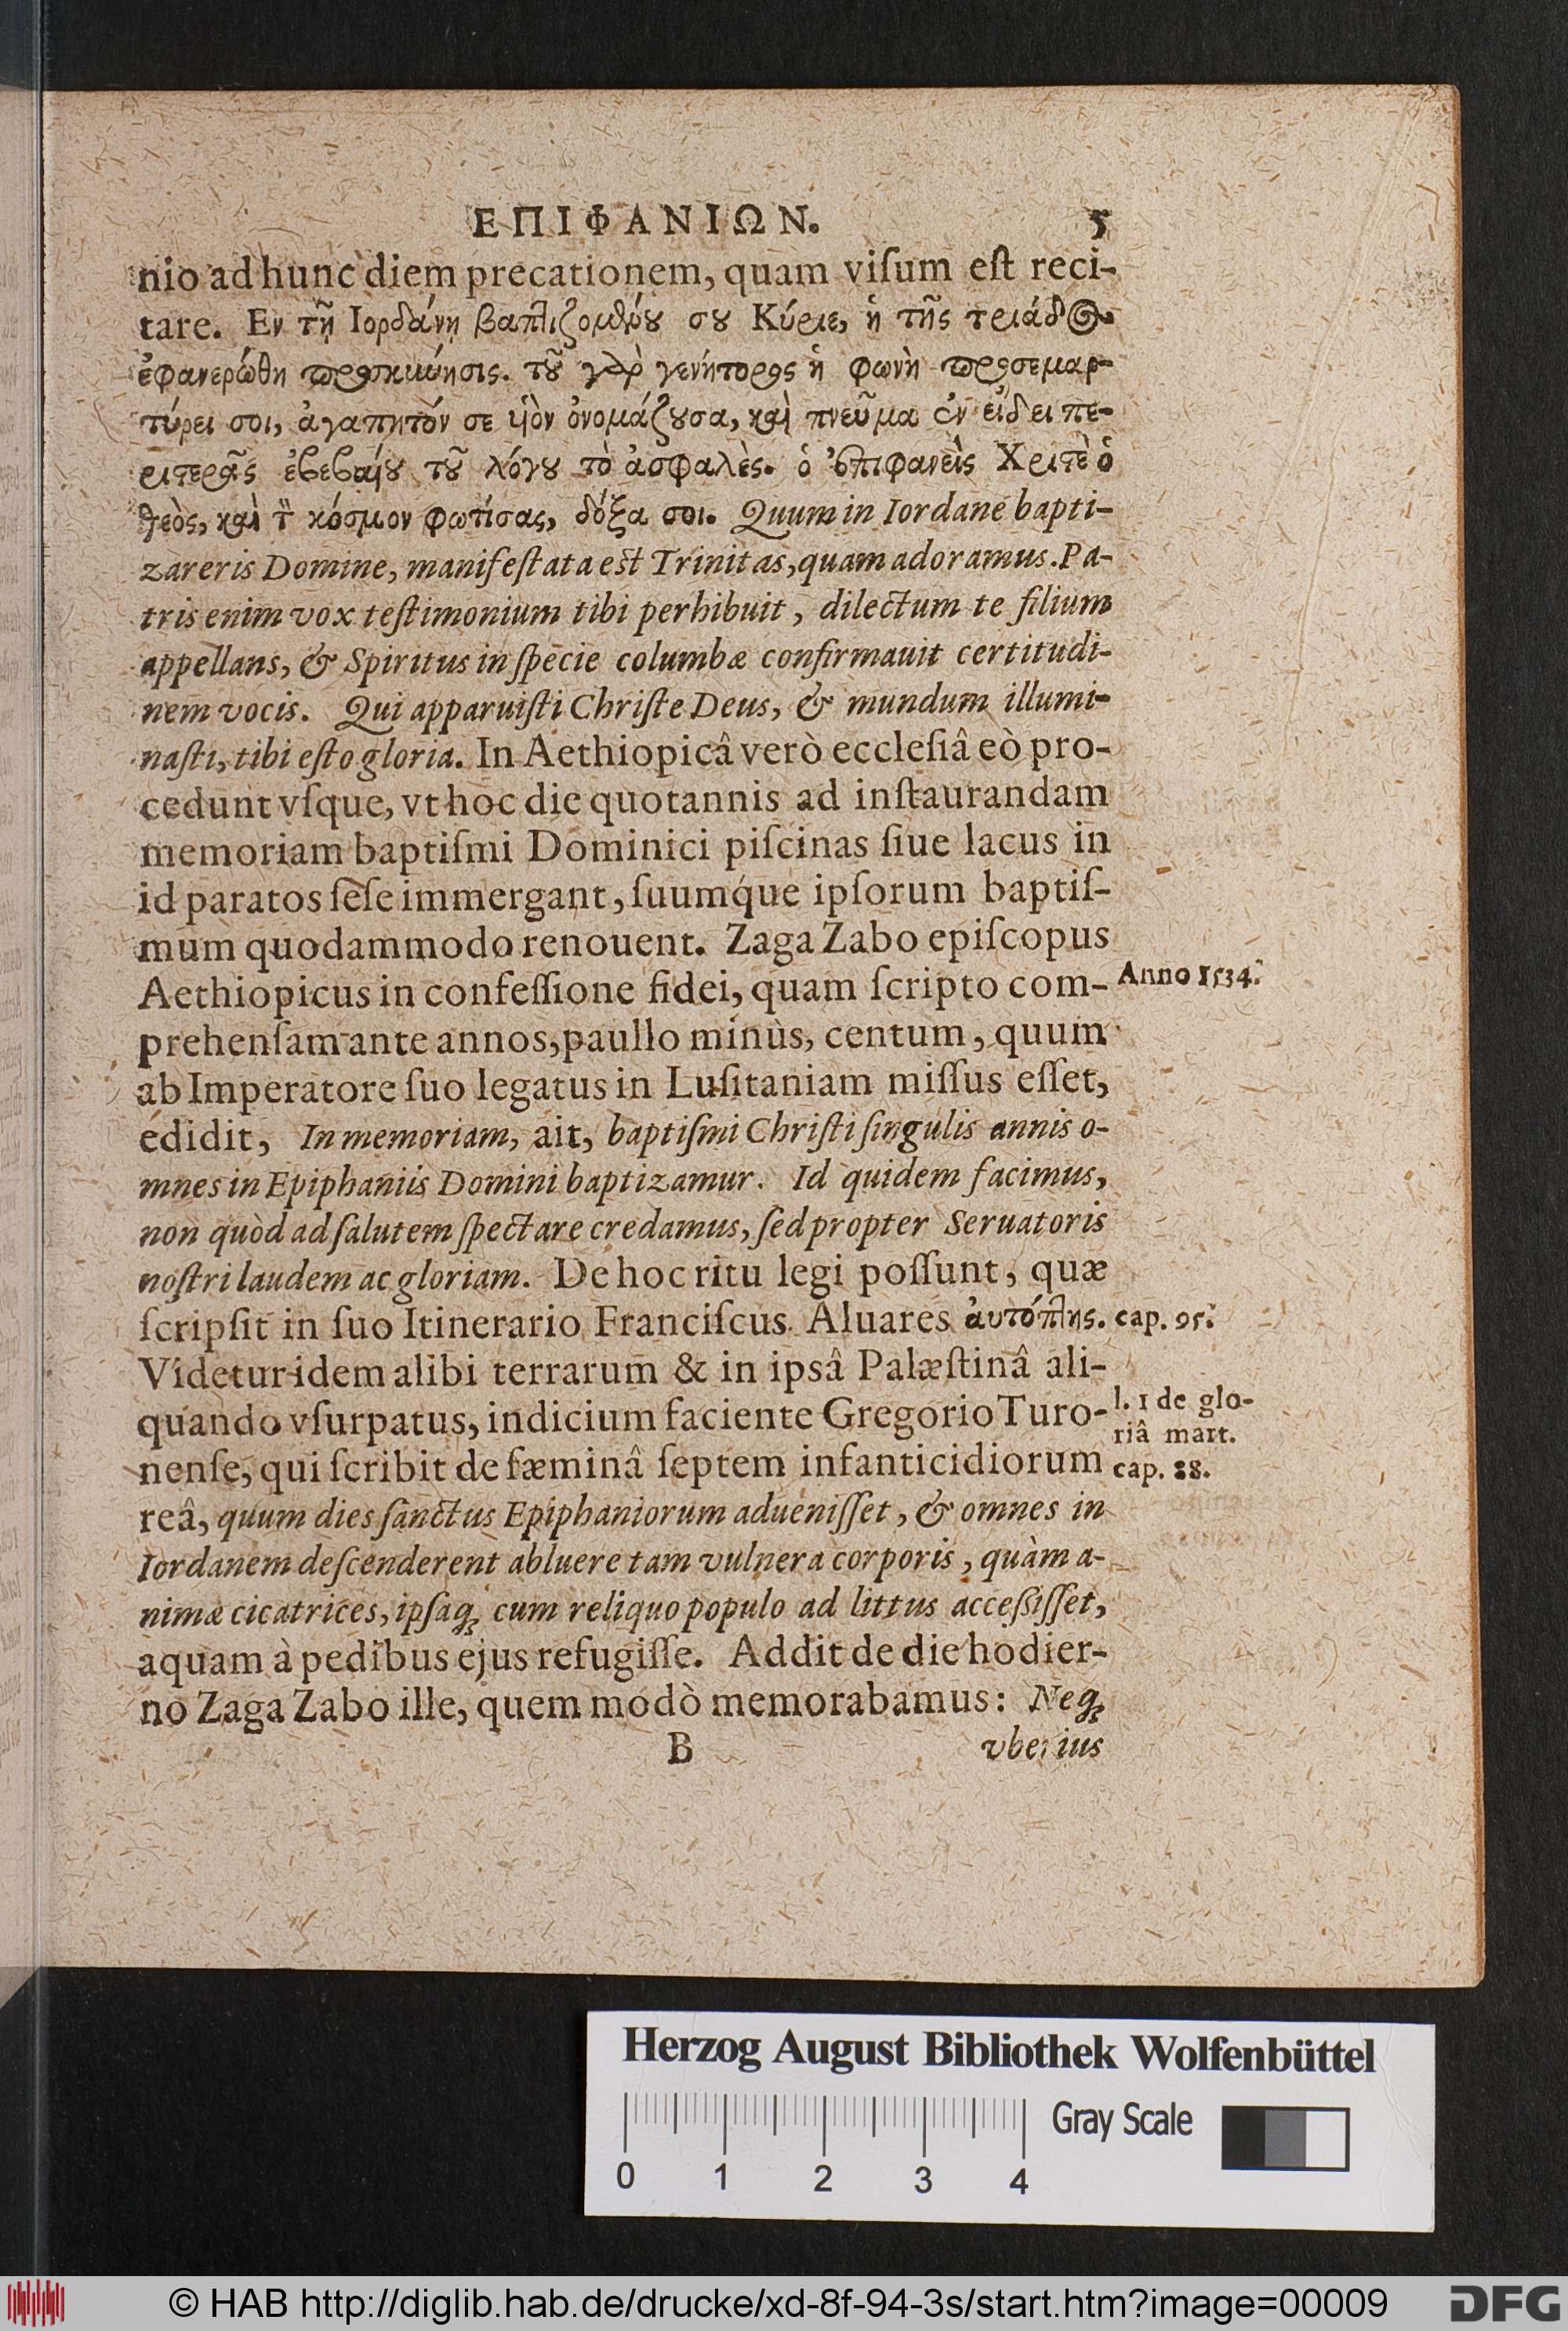 ΕΠΙΦΑΝΙΩΝ. 5
nio ad hunc diem precationem, quam viſum eſt reci-
tare. Εν τῇ Ιορδάνῃ βαπτιζομένου σου Κύριε, ἡ τῆς τριάδος
ἐφανερώθη προσκύνησις. τοῦ γὰρ γενήτορος ἡ φωνὴ προσεμαρ-
τύρει σοι, ἀγαπητόν σε υἱὸν ὀνομάζουσα, καὶ πνεῦμα ἐν εἴδει πε-
ριστερᾶς ἐβεβαίου τοῦ λόγου τὸ ἀσφαλὲς. ὁ ἐπιφανεὶς Χριστὲ ὁ
θεὸς, καὶ τὸν κόσμον φωτίσας, δόξα σοι. Quum in Iordane bapti-
zareris Domine, manifeſtata eſt Trinitas, quam adoramus. Pa-
tris enim vox teſtimonium tibi perhibuit, dilectum te filium
appellans, & Spiritus in ſpecie columbæ confirmauit certitudi-
nem vocis. Qui apparuiſti Chriſte Deus, & mundum illumi-
naſti, tibi eſto gloria. In Aethiopicâ verò eccleſiâ eò pro-
cedunt vſque, vt hoc die quotannis ad inſtaurandam
memoriam baptiſmi Dominici piſcinas ſiue lacus in
id paratos ſeſe immergant, ſuumq́ue ipſorum baptiſ-
mum quodammodo renouent. Zaga Zabo epiſcopus
Aethiopicus in confeſſione fidei, quam ſcripto com-
Anno 1534.
prehenſam ante annos, paullo minùs, centum, quum
ab Imperatore ſuo legatus in Luſitaniam miſſus eſſet,
edidit, In memoriam, ait, baptiſmi Chriſti ſingulis annis o-
mnes in Epiphaniis Domini baptizamur. Id quidem facimus,
non quòd ad ſalutem ſpectare credamus, ſed propter Seruatoris
noſtri laudem ac gloriam. De hoc ritu legi poſſunt, quæ
ſcripſit in ſuo Itinerario Franciſcus Aluares ἀυτόπτης.
cap. 95.
Videtur idem alibi terrarum & in ipsâ Palæſtinâ ali-
quando vſurpatus, indicium faciente Gregorio Turo-
l. 1 de glo-
riâ mart.
cap. 88.
nenſe, qui ſcribit de fæminâ ſeptem infanticidiorum
reâ, quum dies ſanctus Epiphaniorum adueniſſet, & omnes in
Iordanem deſcenderent abluere tam vulnera corporis, quàm a-
nimæ cicatrices, ipſaq; cum reliquo populo ad littus acceſſiſſet,
aquam à pedibus ejus refugiſſe. Addit de die hodier-
no Zaga Zabo ille, quem modò memorabamus: Neq;
B vberius
Herzog August Bibliothek Wolfenbüttel
Gray Scale
0 1 2 3 4
© HAB http://diglib.hab.de/drucke/xd-8f-94-3s/start.htm?image=00009
DFG